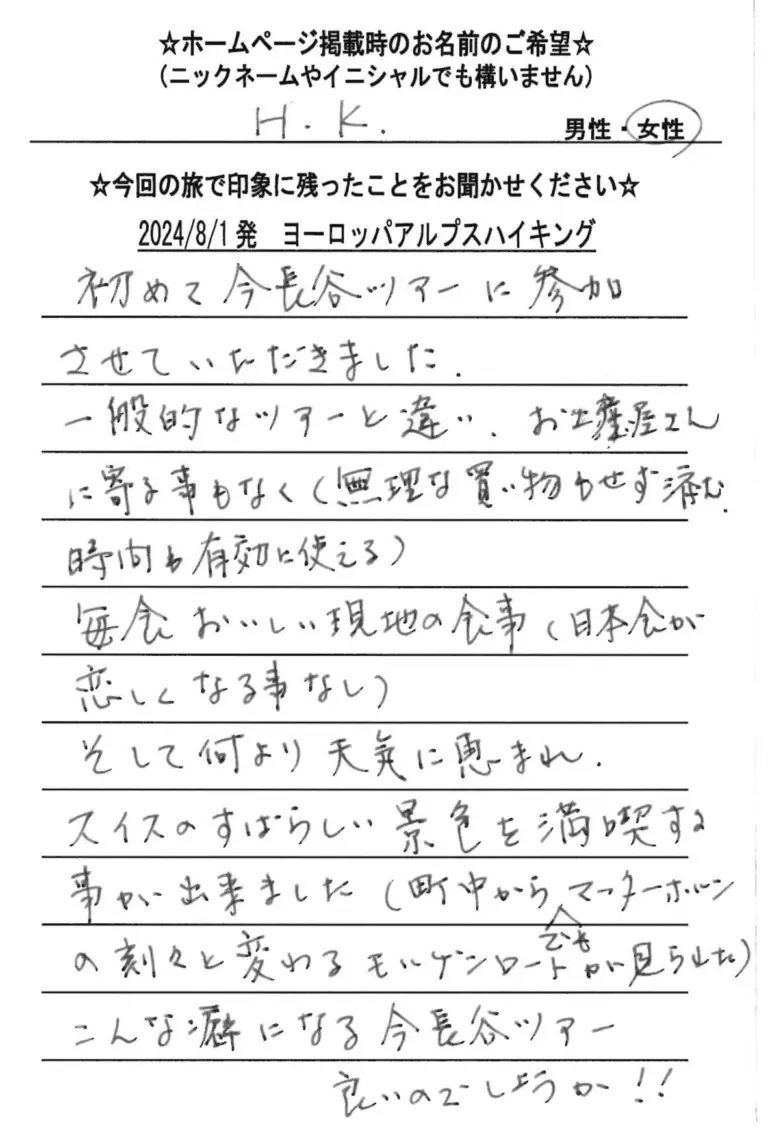 ☆ホームページ掲載時のお名前のご希望☆
(ニックネームやイニシャルでも構いません)
H.K. 男性・女性
☆今回の旅で印象に残ったことをお聞かせください☆
2024/8/1発 ヨーロッパアルプスハイキング
初めて今長谷ツアーに参加
させていただきました.
一般的なツアーと違い、お土産屋さん
に寄る事もなく(無理な買い物もせず済む、
時間も有効に使える)
毎食おいしい現地の食事(日本食が
恋しくなる事なし)
そして何より天気に恵まれ、
スイスのすばらしい景色を満喫する
事が出来ました(町中からでもマッターホルン
の刻々と変わるモルゲンロートが見られた)
こんな癖になる今長谷ツアー
良いのでしょうか!!